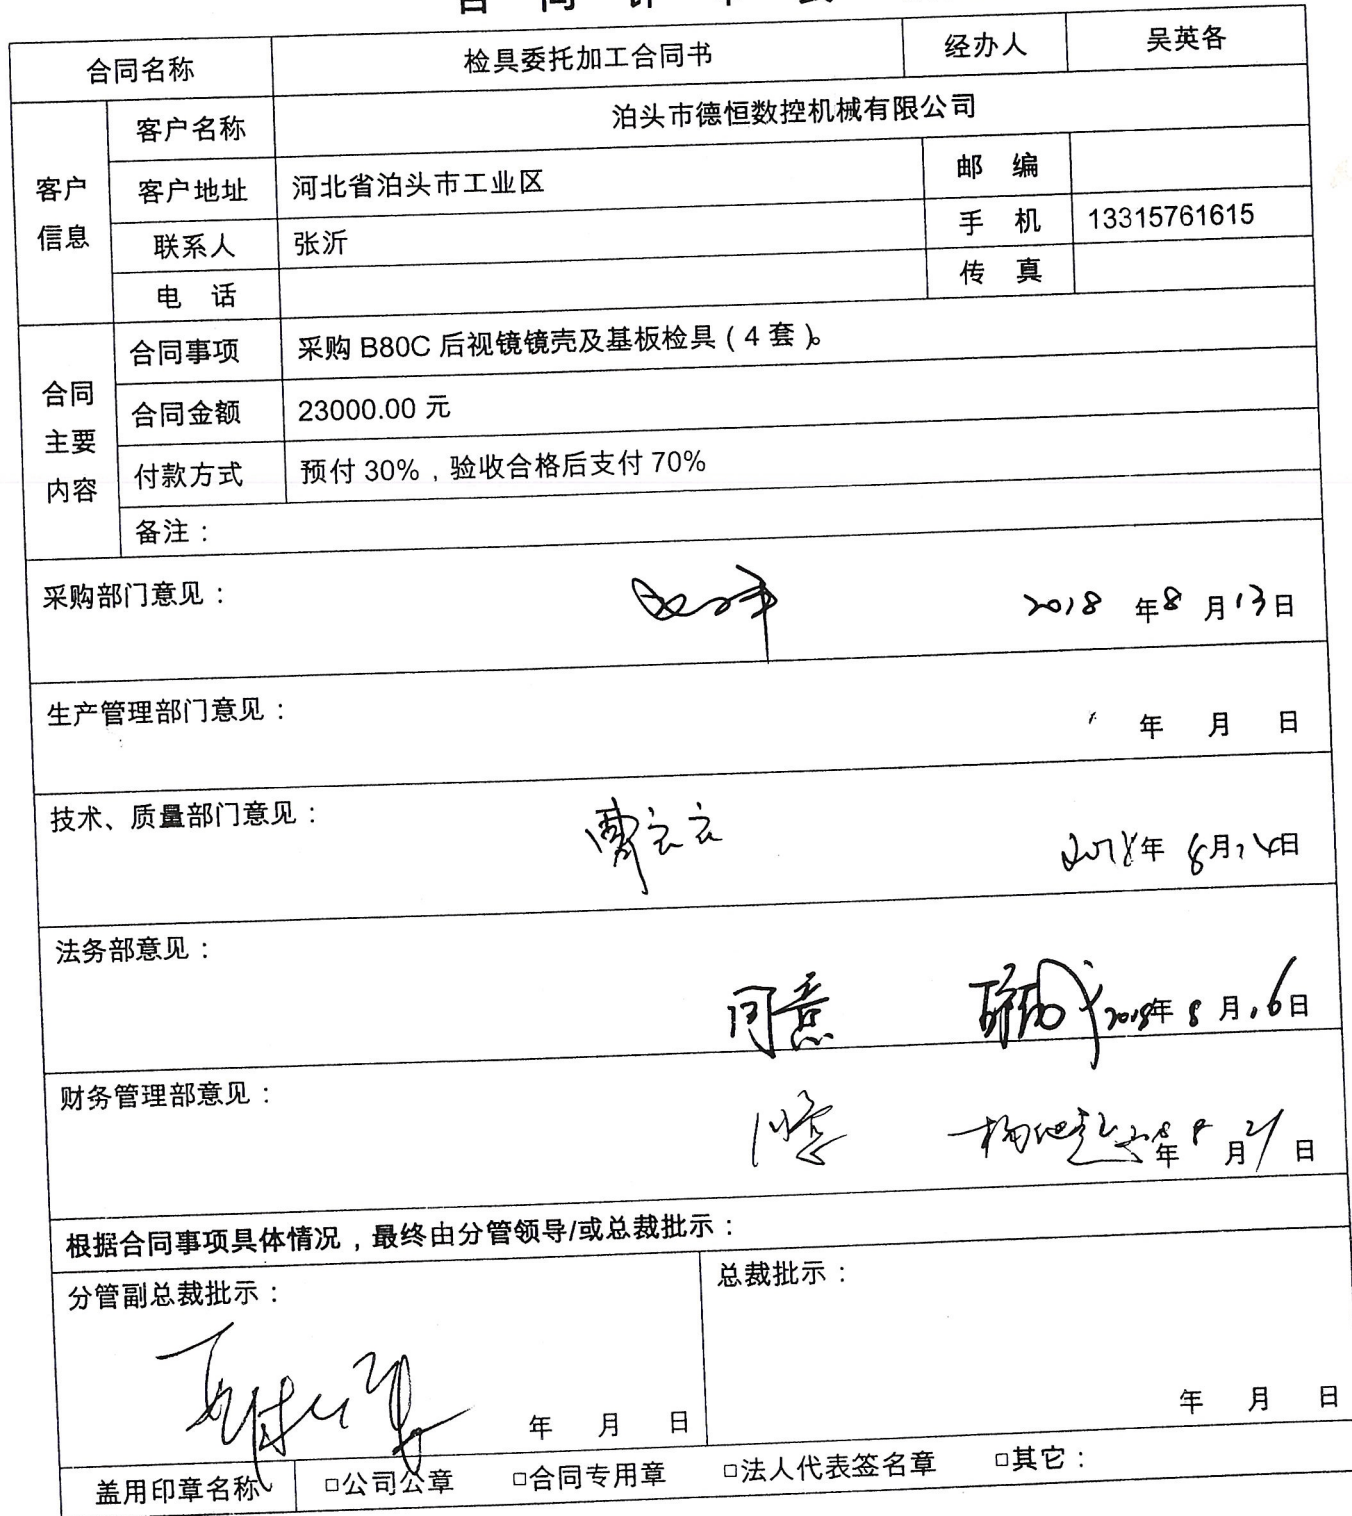 合同名称 检具委托加工合同书 经办人 吴英各
客户信息 客户名称 泊头市德恒数控机械有限公司
客户地址 河北省泊头市工业区 邮 编
联系人 张沂 手 机 13315761615
电 话 传 真
合同主要内容 合同事项 采购 B80C 后视镜镜壳及基板检具（4 套）。
合同金额 23000.00 元
付款方式 预付 30%，验收合格后支付 70%
备注：
采购部门意见： 2018 年 8 月 13 日
生产管理部门意见： 年 月 日
技术、质量部门意见： 曹云云 2018年 8月14日
法务部意见：
同意 2018年 8 月 16日
财务管理部意见：
同意 2018年 8 月 21 日
根据合同事项具体情况，最终由分管领导/或总裁批示：
分管副总裁批示： 总裁批示：
年 月 日 年 月 日
盖用印章名称 □公司公章 □合同专用章 □法人代表签名章 □其它：